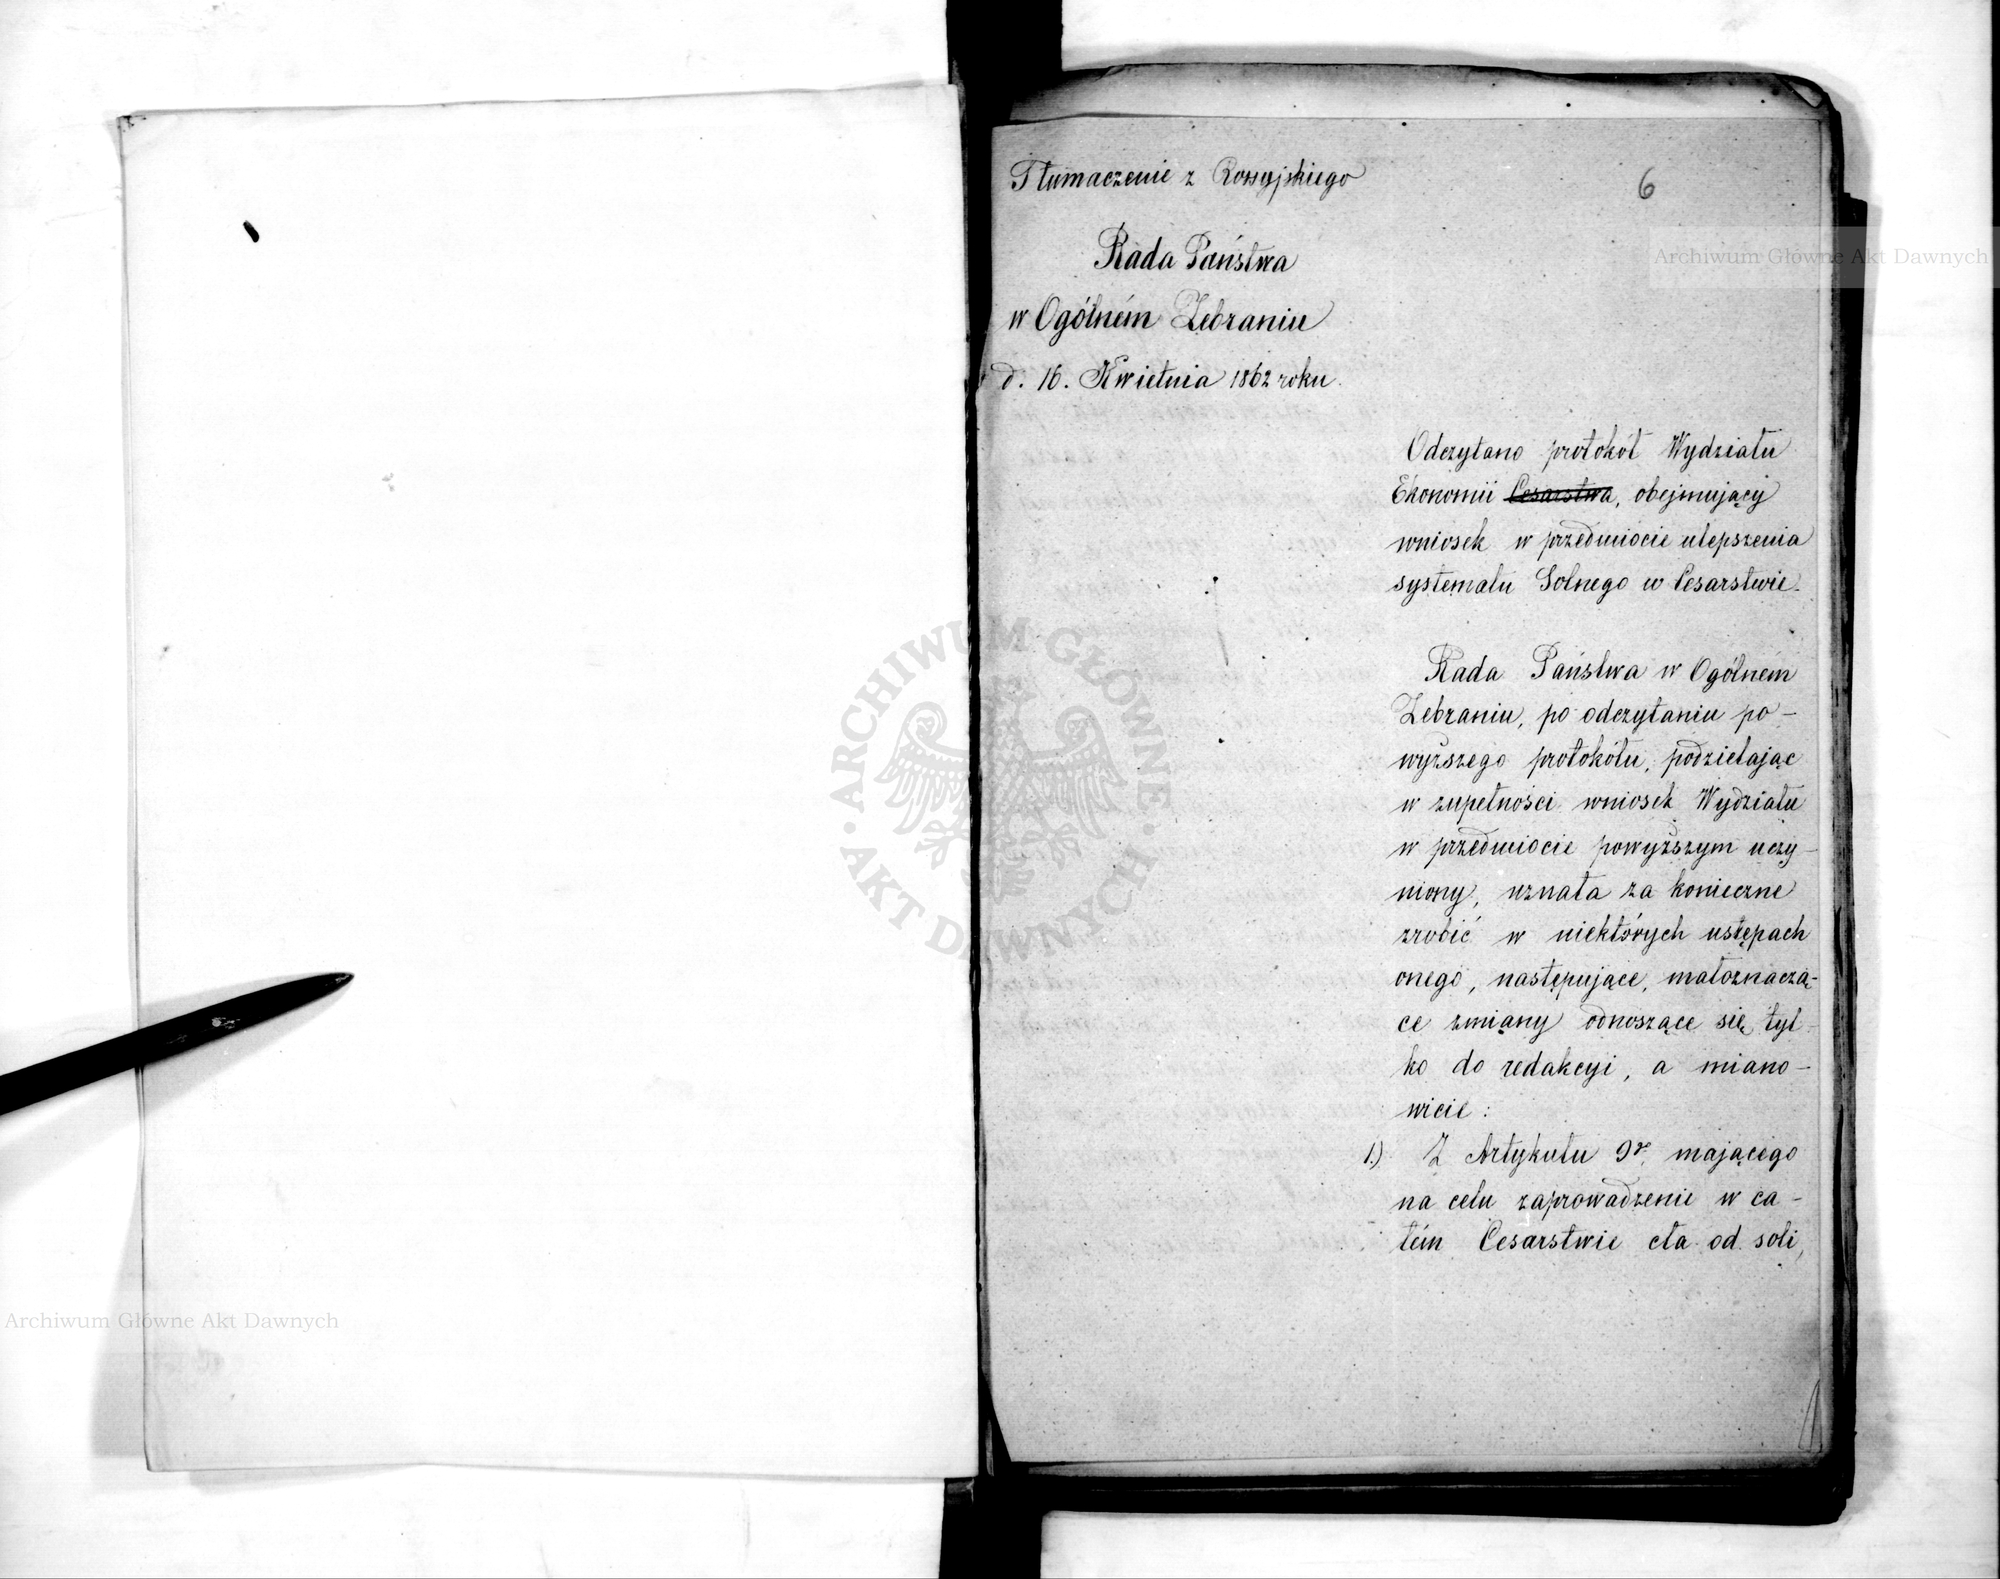 Tłumaczenie z Rossyjskiego
6
Rada Państwa
w Ogólném Zebraniu
d. 16. Kwietnia 1862 roku.
Odczytano protokół Wydziału
Ekonomii Cesarstwa, obejmujący
wniosek w przedmiocie ulepszenia
systematu Solnego w Cesarstwie.
Rada Państwa w Ogólném
Zebraniu, po odczytaniu po-
wyższego protokółu, podzielając
w zupełności wniosek Wydziału
w przedmiocie powyższym uczy-
niony, uznała za konieczne
zrobić w niektórych ustępach
onego, następujące, małoznaczą-
ce zmiany odnoszące się tyl-
ko do redakcyi, a miano-
wicie:
1.) Z Artykułu 9go, mającego
na celu zaprowadzenie w ca-
łém Cesarstwie cła od soli,
Archiwum Główne Akt Dawnych
Archiwum Główne Akt Dawnych
ARCHIWUM GŁÓWNE · AKT DAWNYCH ·